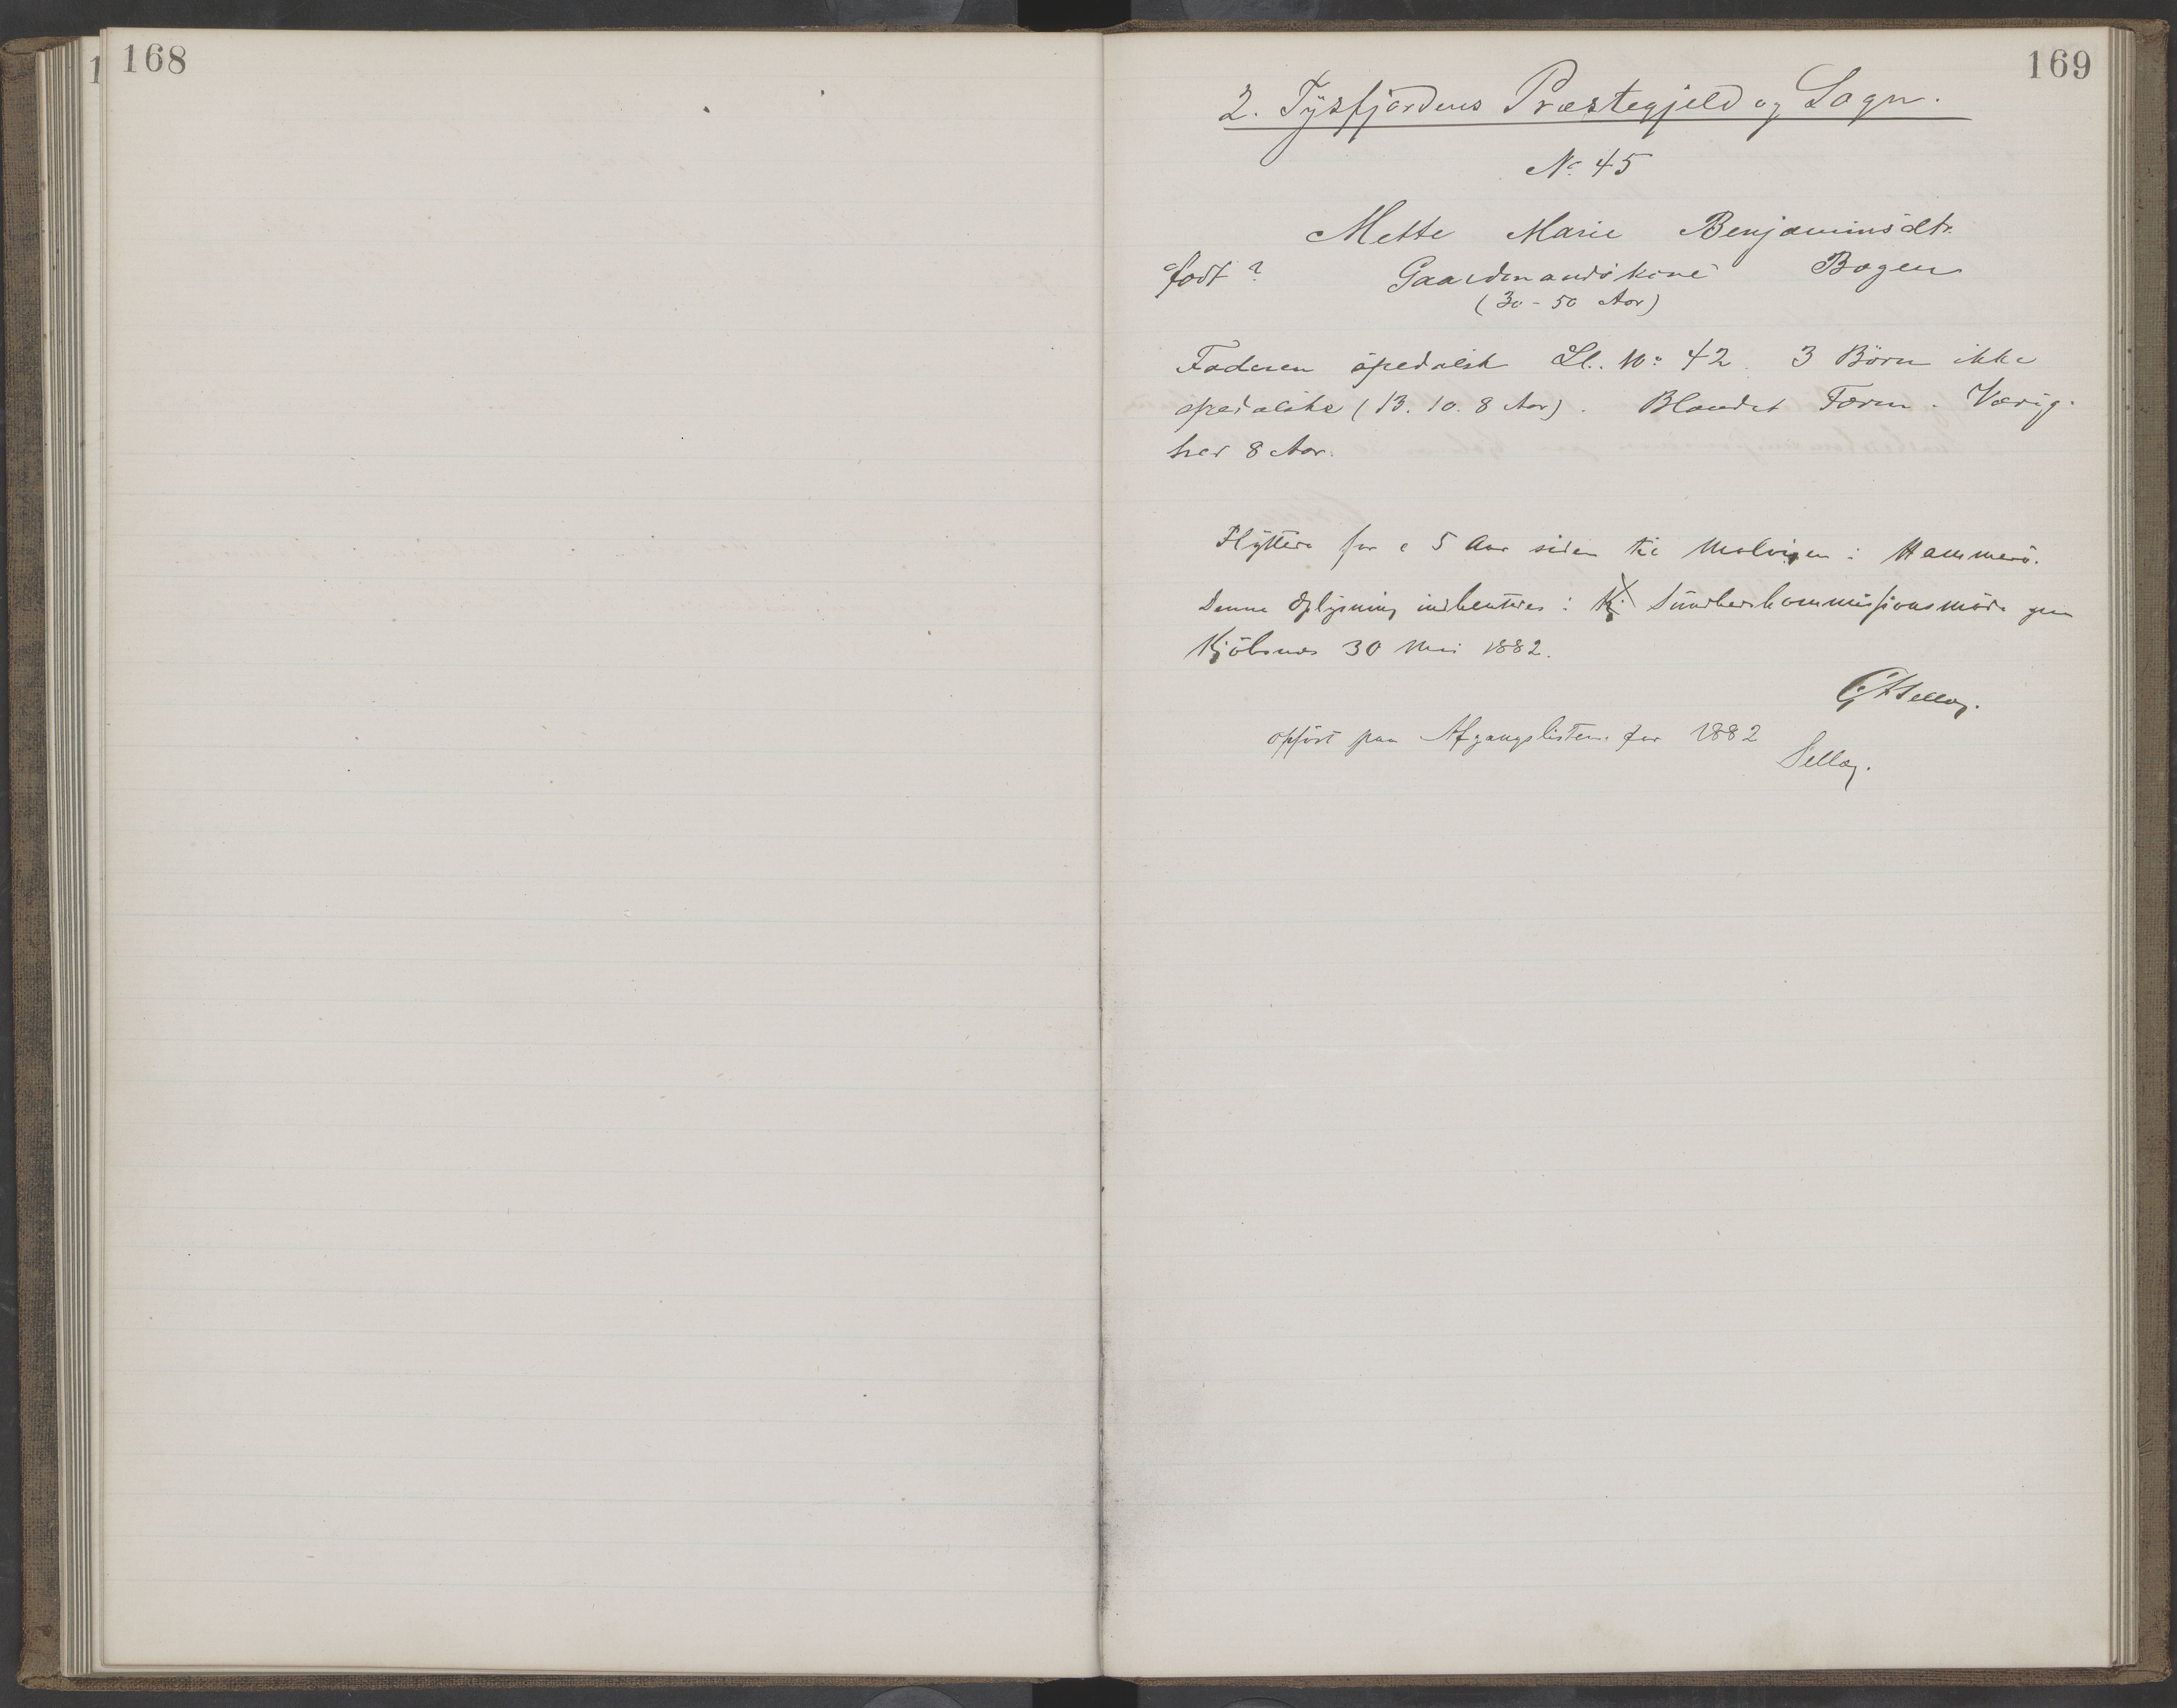 168
169
2. Tysfjordens Præstegjeld og Sogn.
No 45
Mette Marie Benjaminsdtr.
født? Gaardmandskone Bogen
(30-50 Aar)
Faderen spedalsk Ll. No: 42. 3 Börn ikke
spedalske (13. 10. 8 Aar). Blandet Form. Varig-
hed 8 Aar.
Flyttede for c 5 Aar siden til i Hammerö.
Denne Oplysning indhentedes i Sundhedskommissionsmöde paa
Kjöbsnes 30 Mai 1882.
Sellæg.
opfört paa Afgangslisten for 1882
Sellæg.